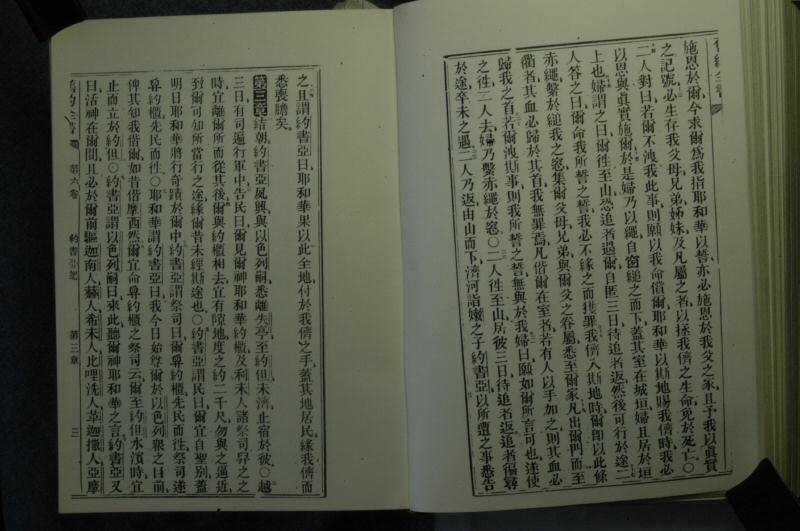 舊約全書
施恩於爾今求爾爲我指耶和華以誓亦必施恩於我父之家且予我以眞實
之記號必生存我父母兄弟姊妹及凡屬之者以拯我儕之生命免於死亡○
二人對曰若爾不洩我此事則願以我命償爾耶和華以斯地賜我儕時我必
以恩與眞實施爾於是婦乃以繩自窗縋之而下蓋其室在城垣婦且居於垣
上也婦謂之曰爾徃至山恐追者遇爾自匿三日待追者返然後可行於途二
人答之曰爾命我所誓之誓我必不緣之而獲罪我儕入斯地時爾卽以此條
赤繩繫於縋我之窓集爾父母兄弟與爾父之眷屬悉至爾家凡出爾門而至
衢者其血必歸於其首我無罪焉凡偕爾在室者若有人以手加之則其血必
歸我之首若爾洩斯事則我所誓之誓無與於我婦曰願如爾所言可也遂使
之徃二人去婦乃繫赤繩於窓○二人徃至山居彼三日待追者返追者徧尋
於途卒未之遇二人乃返由山而下濟河詣嫩之子約書亞以所遭之事悉告
之且謂約書亞曰耶和華果以此全地付於我儕之手蓋其地居民緣我儕而
悉喪膽矣
第三章 詰朝約書亞夙興與以色列嗣悉離失亭至約但未濟止宿於彼○越
三日有司遍行軍中告民曰爾見爾神耶和華約櫃及利未人諸祭司舁之之
時宜離爾所而從其後爾與約櫃相去宜有隙地度之約二千尺勿與之逼近
致爾可知所當行之途緣爾昔未經斯途也○約書亞謂民曰爾宜自聖別蓋
明日耶和華將行奇蹟於爾中約書亞謂祭司曰爾舁約櫃先民而徃祭司遂
舁約櫃先民而徃○耶和華謂約書亞曰我今日始尊爾於以色列衆之目前
俾其知我偕爾如昔偕摩西然爾宜命舁約櫃之祭司云爾至約但水濱時宜
止而立於約但○約書亞謂以色列嗣曰來此聽爾神耶和華之言約書亞又
曰活神在爾間且必於爾前驅迦南人赫人希未人比哩洗人革迦撒人亞摩
舊約全書 第六卷 約書亞記 第三章 三